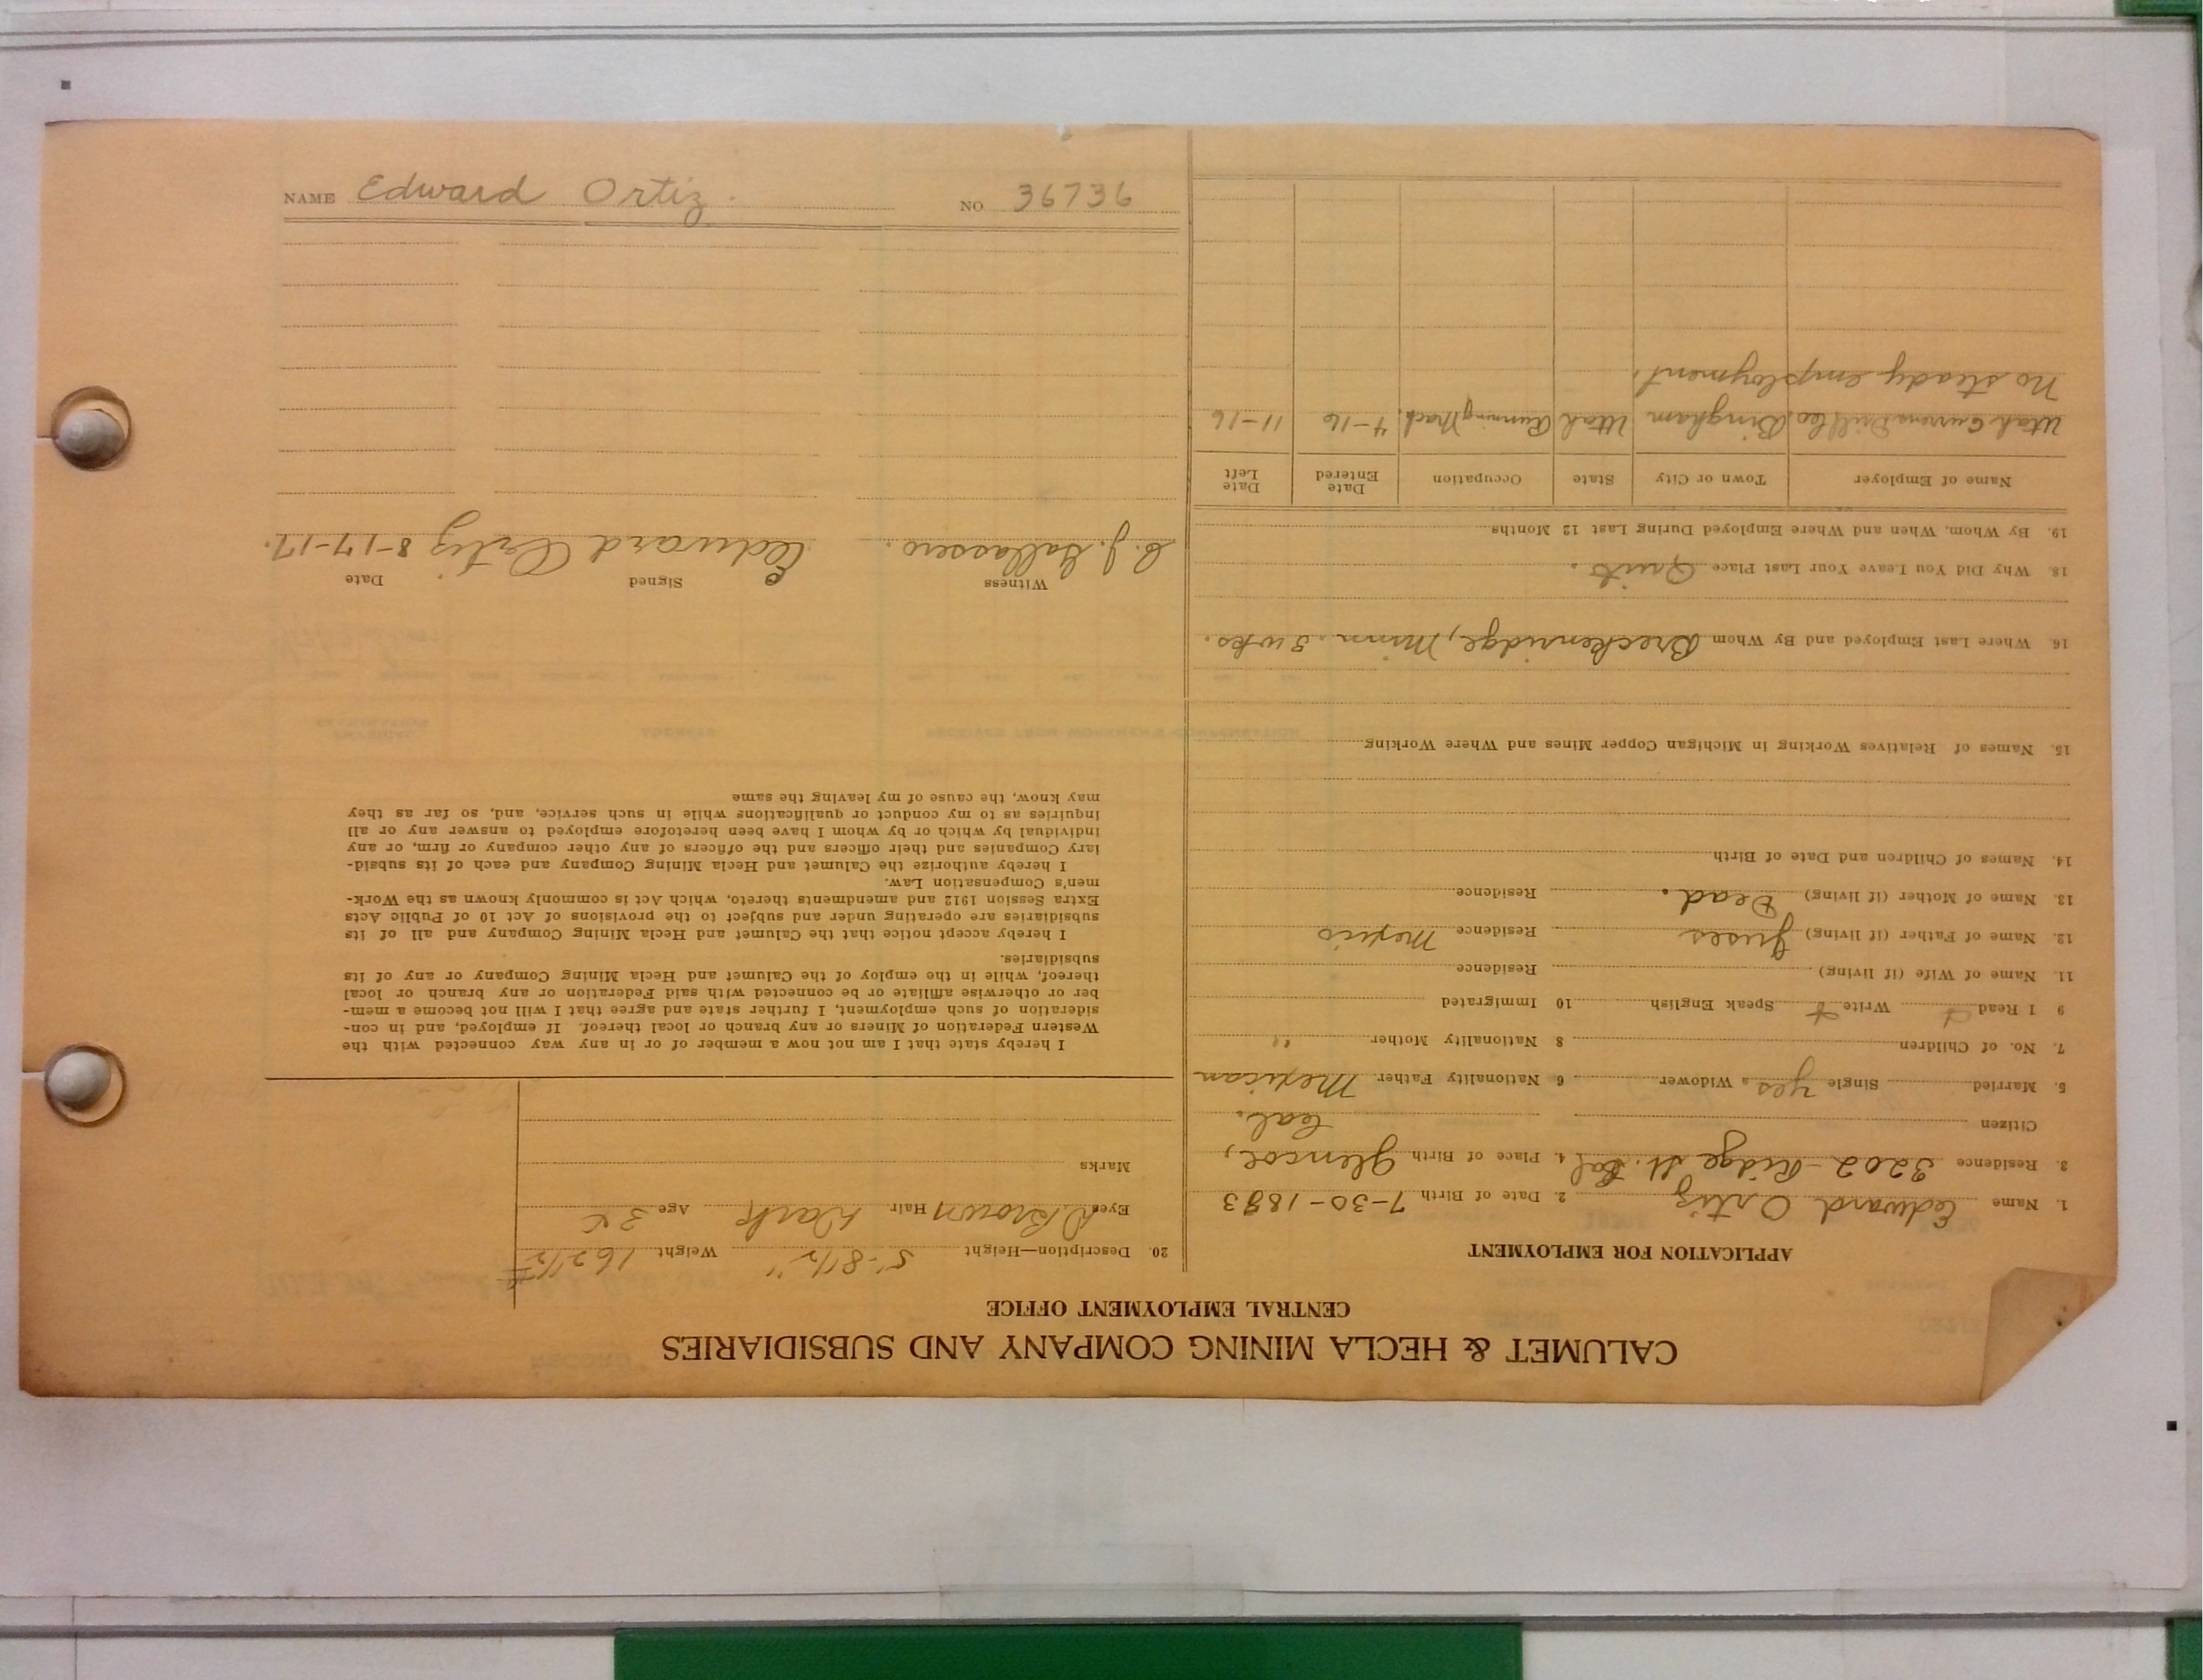 CALUMET & HECLA MINING COMPANY AND SUBSIDIARIES
CENTRAL EMPLOYMENT OFFICE
APPLICATION FOR EMPLOYMENT
1. Name Edward Ortiz 2. Date of Birth 7-30-1883
3. Residence 3202-Ridge St. Cal 4. Place of Birth Glencoe,
Citizen Cal.
5. Married Single yes a Widower 6 Nationality Father Mexican
7. No. of Children 8 Nationality Mother "
9 I Read Write Speak English 10 Immigrated
11. Name of Wife (if living) Residence
12. Name of Father (if living) Juses Residence Mexico
13. Name of Mother (if living) Dead. Residence
14. Names of Children and Date of Birth
15. Names of Relatives Working in Michigan Copper Mines and Where Working
16. Where Last Employed and By Whom Breckenridge, Minn. 3 wks.
18. Why Did You Leave Your Last Place Quit.
19. By Whom, When and Where Employed During Last 12 Months
Name of Employer Town or City State Occupation Date Entered Date Left
Utah Drill Co. Bingham Utah Running Mach. 4-16 11-16
No steady employment.
20. Description—Height 5'-8 1/2" Weight 162 1/2#
Eyes D Brown Hair Dark Age
Marks
I hereby state that I am not now a member of or in any way connected with the
Western Federation of Miners or any branch or local thereof. If employed, and in con-
sideration of such employment, I further state and agree that I will not become a mem-
ber or otherwise affiliate or be connected with said Federation or any branch or local
thereof, while in the employ of the Calumet and Hecla Mining Company or any of its
subsidiaries.
I hereby accept notice that the Calumet and Hecla Mining Company and all of its
subsidiaries are operating under and subject to the provisions of Act 10 of Public Acts
Extra Session 1912 and amendments thereto, which Act is commonly known as the Work-
men's Compensation Law.
I hereby authorize the Calumet and Hecla Mining Company and each of its subsid-
iary Companies and their officers and the officers of any other company or firm, or any
individual by which or by whom I have been heretofore employed to answer any or all
inquiries as to my conduct or qualifications while in such service, and, so far as they
may know, the cause of my leaving the same
Witness Signed Date
Edward Ortiz 8-17-17.
NAME Edward Ortiz. NO 36736